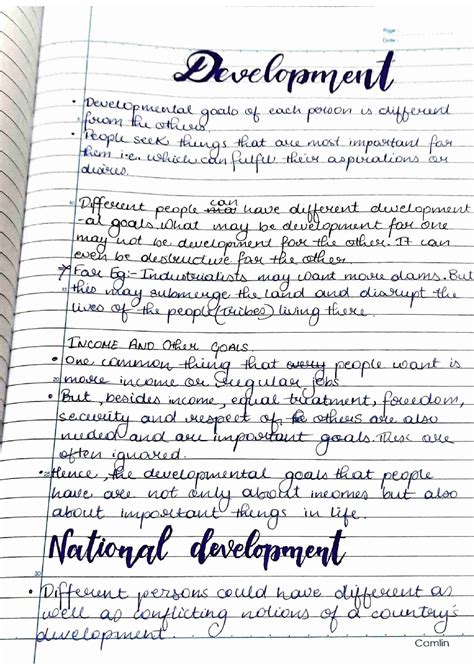 Page :
Date :
Development
• Developmental goals of each person is different
from the others.
• People seek things that are most important for
them i.e. which can fulfil their aspirations or
desires.
Different people can have different development
-al goals. What may be development for one
may not be development for the other. It can
even be destructive for the other.
→ For Eg:- Industrialists may want more dams. But
this may submerge the land and disrupt the
lives of the people (Tribes) living there.
INCOME AND OTHER GOALS.
• One common thing that people want is
more income or regular jobs
• But, besides income, equal treatment, freedom,
security and respect of others are also
needed and are important goals. These are
often ignored.
• Hence, the developmental goals that people
have are not only about incomes but also
about important things in life.
National development
• Different persons could have different as
well as conflicting notions of a country's
development.
Camlin